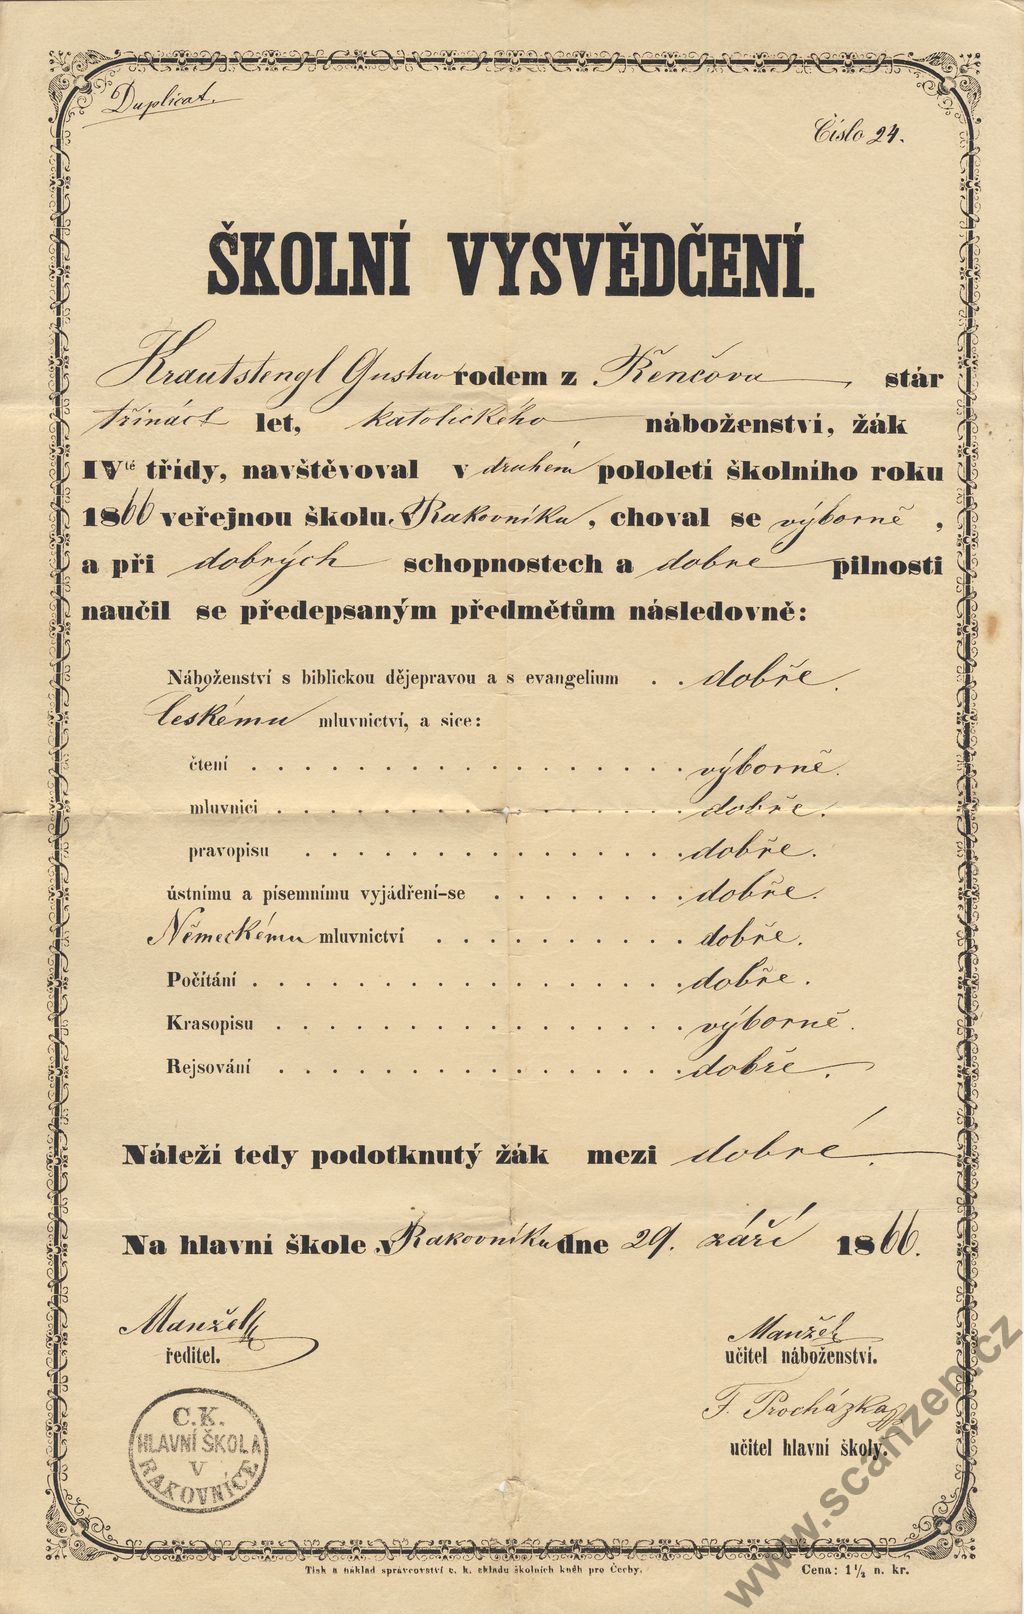 Duplicat.
Číslo 24.
ŠKOLNÍ VYSVĚDČENÍ.
Krautstengl Gustav rodem z Řenčova stár
třináct let, katolického náboženství, žák
IVté třídy, navštěvoval v druhém pololetí školního roku
1866 veřejnou školu v Rakovníku, choval se výborně,
a při dobrých schopnostech a dobré pilnosti
naučil se předepsaným předmětům následovně:
Náboženství s biblickou dějepravou a s evangelium . . dobře.
Českému mluvnictví, a sice:
čtení . . . . . . . . . . . . . . . . . výborně.
mluvnici . . . . . . . . . . . . . . . . dobře.
pravopisu . . . . . . . . . . . . . . . dobře.
ústnímu a písemnímu vyjádření-se . . . . . . . . dobře.
Německému mluvnictví . . . . . . . . . . dobře.
Počítání . . . . . . . . . . . . . . . . . dobře.
Krasopisu . . . . . . . . . . . . . . . . výborně.
Rejsování . . . . . . . . . . . . . . . . dobře.
Náleží tedy podotknutý žák mezi dobré.
Na hlavní škole v Rakovníku dne 29. září 1866.
Manžel
ředitel.
Manžel
učitel náboženství.
F. Procházka
učitel hlavní školy.
C.K.
HLAVNÍ ŠKOLA
V
RAKOVNÍCE
Tisk a náklad správcovství c. k. skladu školních kněh pro Čechy.
Cena: 1½ n. kr.
www.scanzen.cz